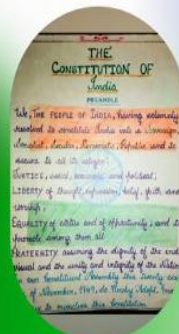 THE
CONSTITUTION OF
India
PREAMBLE
We, THE PEOPLE OF INDIA, having solemnly
resolved to constitute India into a Sovereign,
Socialist, Secular, Democratic, Republic and to
secure to all its
JUSTICE, social, economic and political;
LIBERTY of thought, expression, belief, faith and
worship;
EQUALITY of status and of opportunity; and to
promote among them all
FRATERNITY assuring the dignity of the
and the unity and integrity of the Nation
in our Constituent Assembly this
of November, 1949, do Hereby Adopt,
to ourselves this Constitution.